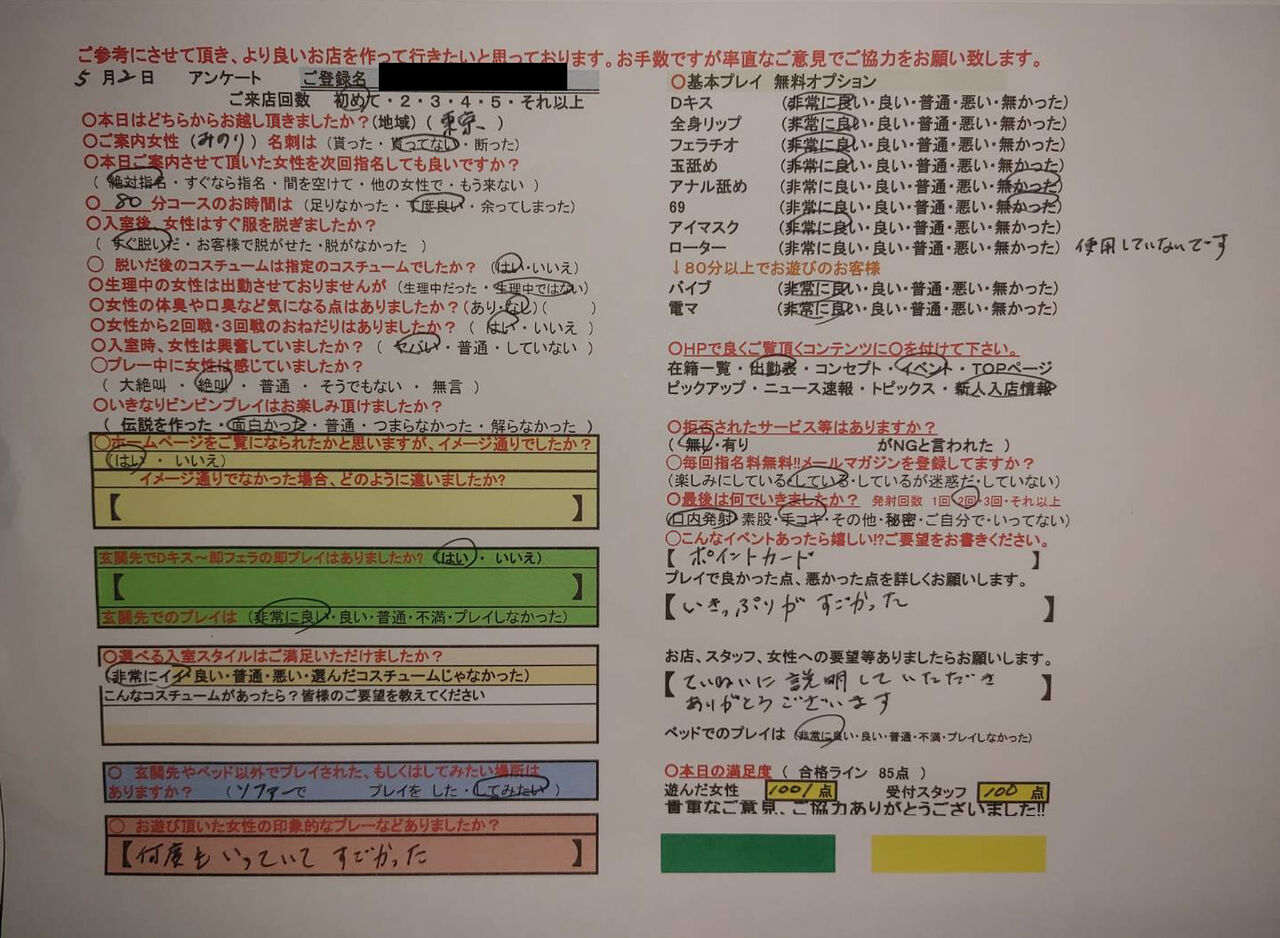 ご参考にさせて頂き、より良いお店を作って行きたいと思っております。お手数ですが率直なご意見でご協力をお願い致します。
5月2日 アンケート ご登録名
ご来店回数 初めて・2・3・4・5・それ以上
〇本日はどちらからお越し頂きましたか?(地域) ( 東京 )
〇ご案内女性 (みのり) 名刺は (貰った・貰ってない・断った)
〇本日ご案内させて頂いた女性を次回指名しても良いですか?
( 絶対指名・すぐなら指名・間を空けて・他の女性で・もう来ない )
〇 80 分コースのお時間は (足りなかった・丁度良い・余ってしまった)
〇入室後、女性はすぐ服を脱ぎましたか?
( すぐ脱いだ・お客様で脱がせた・脱がなかった )
〇 脱いだ後のコスチュームは指定のコスチュームでしたか? (はい・いいえ)
〇生理中の女性は出勤させておりませんが (生理中だった・生理中ではない)
〇女性の体臭や口臭など気になる点はありましたか?(あり・なし)( )
〇女性から2回戦・3回戦のおねだりはありましたか? ( はい・いいえ )
〇入室時、女性は興奮していましたか? ( ヤバい・普通・していない )
〇プレー中に女性は感じていましたか?
( 大絶叫・絶叫・普通・そうでもない・無言 )
〇いきなりビンビンプレイはお楽しみ頂けましたか?
( 伝説を作った・面白かった・普通・つまらなかった・解らなかった )
〇ホームページをご覧になられたかと思いますが、イメージ通りでしたか?
(はい ・ いいえ)
イメージ通りでなかった場合、どのように違いましたか?
【 】
玄関先でDキス～即フェラの即プレイはありましたか? (はい・ いいえ)
【 】
玄関先でのプレイは (非常に良い・良い・普通・不満・プレイしなかった)
〇選べる入室スタイルはご満足いただけましたか?
(非常にイイ・良い・普通・悪い・選んだコスチュームじゃなかった)
こんなコスチュームがあったら?皆様のご要望を教えてください
〇 玄関先やベッド以外でプレイされた、もしくはしてみたい場所は
ありますか? (ソファーで プレイを した・してみたい )
〇 お遊び頂いた女性の印象的なプレーなどありましたか?
【何度もいっていて すごかった 】
〇基本プレイ 無料オプション
Dキス (非常に良い・良い・普通・悪い・無かった)
全身リップ (非常に良い・良い・普通・悪い・無かった)
フェラチオ (非常に良い・良い・普通・悪い・無かった)
玉舐め (非常に良い・良い・普通・悪い・無かった)
アナル舐め (非常に良い・良い・普通・悪い・無かった)
69 (非常に良い・良い・普通・悪い・無かった)
アイマスク (非常に良い・良い・普通・悪い・無かった)
ローター (非常に良い・良い・普通・悪い・無かった) 使用していないでーす
↓80分以上でお遊びのお客様
バイブ (非常に良い・良い・普通・悪い・無かった)
電マ (非常に良い・良い・普通・悪い・無かった)
〇HPで良くご覧頂くコンテンツに〇を付けて下さい。
在籍一覧・出勤表・コンセプト・イベント・TOPページ
ピックアップ・ニュース速報・トピックス・新人入店情報
〇拒否されたサービス等はありますか?
( 無し・有り がNGと言われた )
〇毎回指名料無料!!メールマガジンを登録してますか?
(楽しみにしている・している・しているが迷惑だ・していない)
〇最後は何でいきましたか? 発射回数 1回・2回・3回・それ以上
(口内発射・素股・手コキ・その他・秘密・ご自分で・いってない)
〇こんなイベントあったら嬉しい!?ご要望をお書きください。
【 ポイントカード 】
プレイで良かった点、悪かった点を詳しくお願いします。
【いきっぷりが すごかった 】
お店、スタッフ、女性への要望等ありましたらお願いします。
【ていねいに説明していただき
ありがとうございます 】
ベッドでのプレイは (非常に良い・良い・普通・不満・プレイしなかった)
〇本日の満足度 ( 合格ライン 85点 )
遊んだ女性 1001点 受付スタッフ 100点
貴重なご意見、ご協力ありがとうございました!!